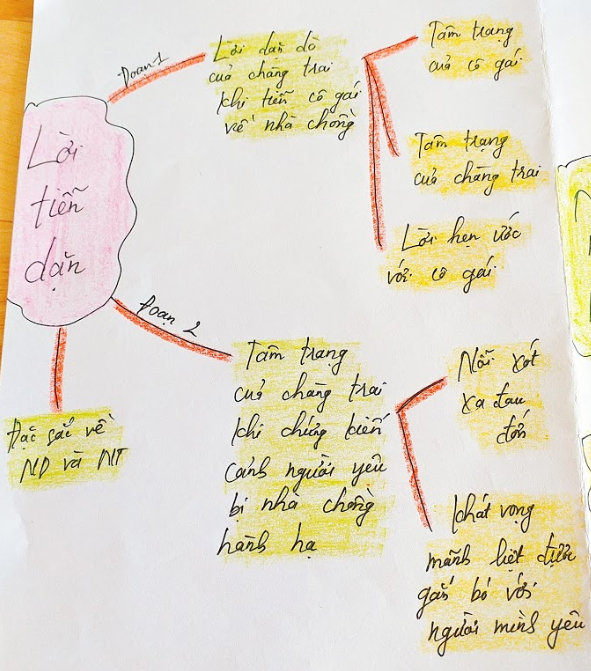 Lời
tiễn
dặn
Đoạn 1
Lời dặn dò
của chàng trai
khi tiễn cô gái
về nhà chồng
Tâm trạng
của cô gái
Tâm trạng
của chàng trai
Lời hẹn ước
với cô gái
Đoạn 2
Tâm trạng
của chàng trai
khi chứng kiến
cảnh người yêu
bị nhà chồng
hành hạ
Nỗi xót
xa đau
đớn
khát vọng
mãnh liệt được
gắn bó với
người mình yêu
Đặc sắc về
ND và NT